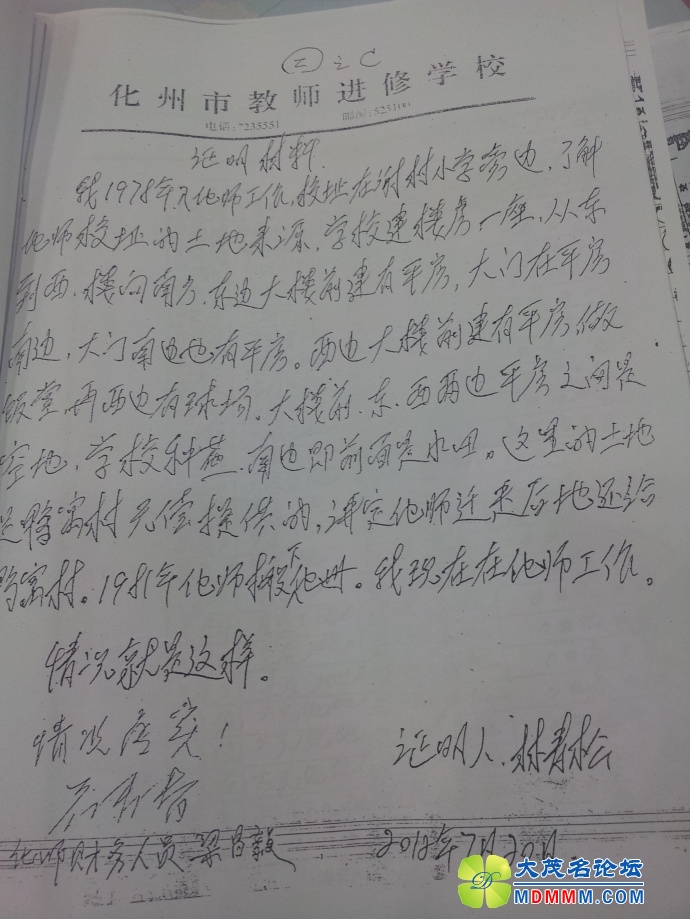 (三)之C
化州市教师进修学校
电话:7235551 邮编:525100
证明材料
我1978年入化师工作,校址在谢村小学旁边,了解
化师校址的土地来源,学校建楼房一座,从东
到西,楼向南方,东边大楼前建有平房,大门在平房
南边,大门南边也有平房。西边大楼前建有平房做
饭堂,再西边有球场,大楼前,东、西两边平房之间是
空地,学校种蔗,南边即前面是水田。这里的土地
是鸭窝村无偿提供的,讲定化师迁来后地还给
窝村。1981年化师搬。我现在在化师工作。
情况就是这样。
情况属实!
证明人:林青松
化师财务人员 梁昌毅 2012年7月20日
大茂名论坛
MDMMM.COM